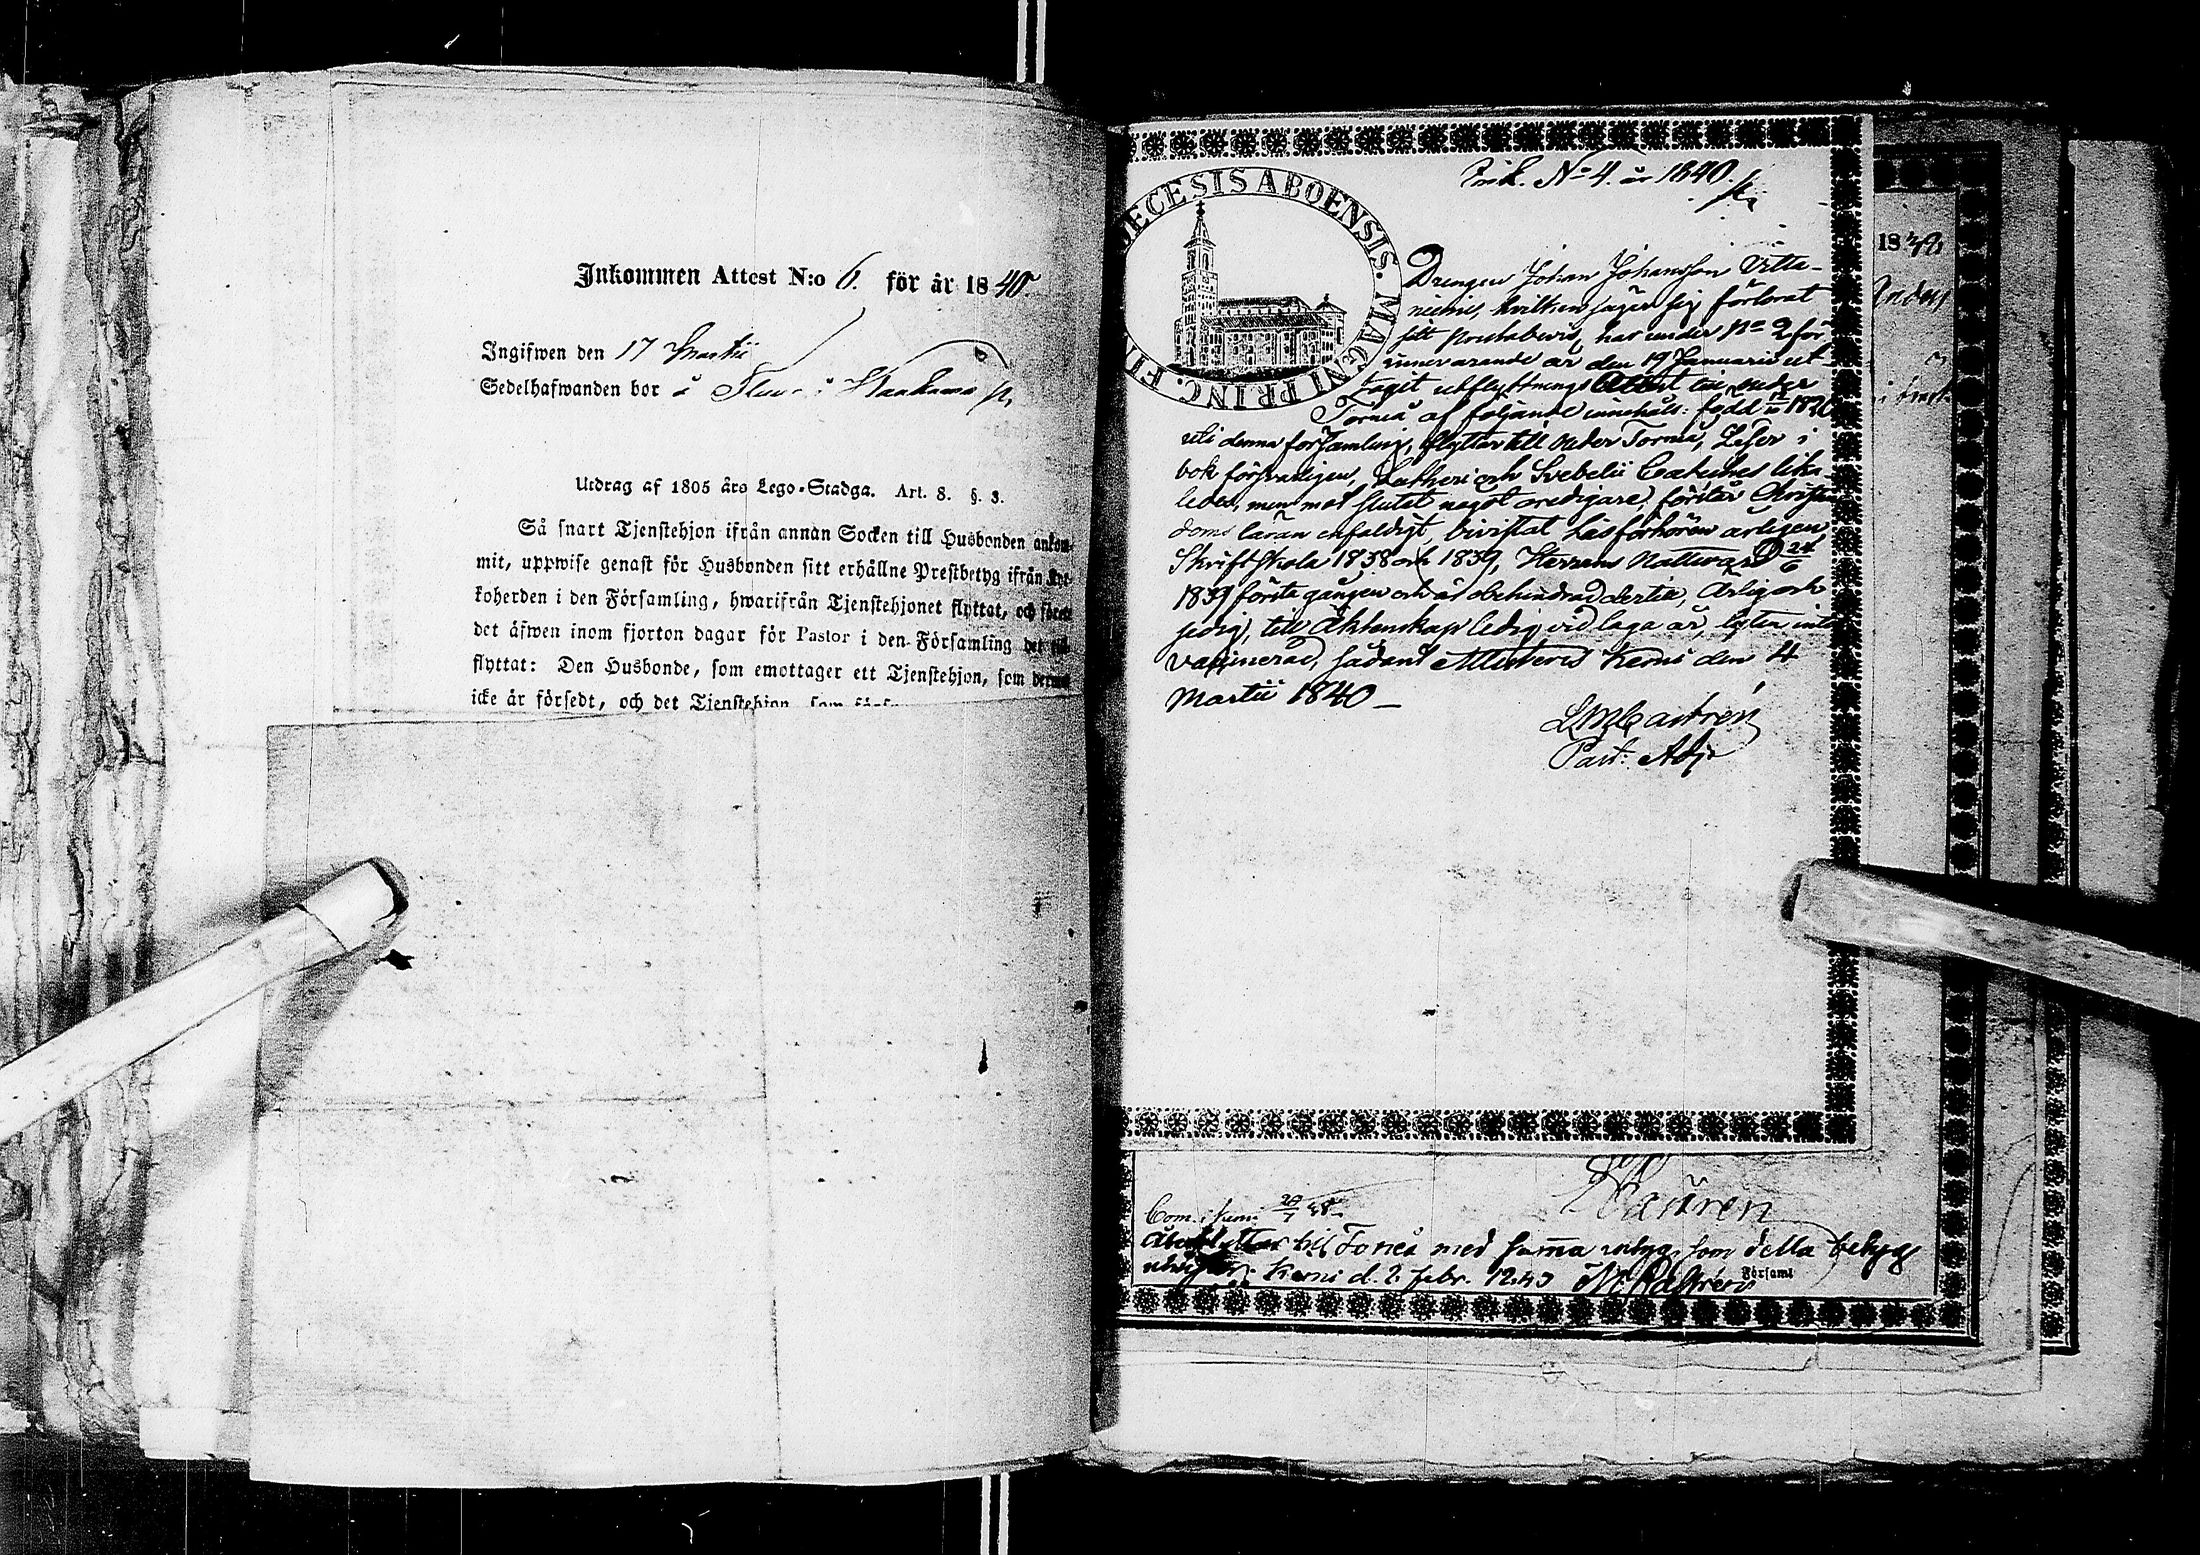 Inkommen Attest N:o 6. för år 1840.
Ingifwen den 17 Martii
Sedelhafwanden bor å i
Utdrag af 1805 års Lego-Stadga. Art. 8. §. 3.
Så snart Tjenstehjon ifrån annan Socken till Husbonden ankom-
mit, uppwise genast för Husbonden sitt erhållne Prestbetyg ifrån Kyr-
koherden i den Församling, hwarifrån Tjenstehjonet flyttat, och
det äfwen inom fjorton dagar för Pastor i den Församling det
flyttat: Den Husbonde, som emottager ett Tjenstehjon, som dermed
icke är försedt, och det Tjenstehjon, som
ECESIS ABOENSIS. MAGNI PRINC. FI
Ink. No 4. år 1840.
Drengen Johan Johansson Vitta-
niemi, hvilken säger sig förlorat
sitt prestabevis, har under No 2 för
innevarande år den 19 Januarii ut-
tagit utflyttnings Attest till Neder
Torneå af följande innehåll: född 1820
uti denna församling, flyttar till Neder Torneå, Läser i
bok försvarligen, Lutheri och Svebelii Catecheser lika
ledes, men mot slutet något oredigare, förstår Christen
doms läran enfaldigt, bivistat Läsförhören årligen,
Skriftskola 1838 och 1839, Herrens Nattvard 24/6
1839 första gången och är obehindrad dertill, Ärlig och
, till Äktenskap ledig vid laga år, Koppor inte
vaccinerad, sådant Attesteras Kemi den 4
Martii 1840 —
LMCastrén
Past: Adj.
1838
Castrén
Com. i Kemi
till Torneå med samma som detta betyg
Kemi d. 2. febr. 1840 Castrén
Församl